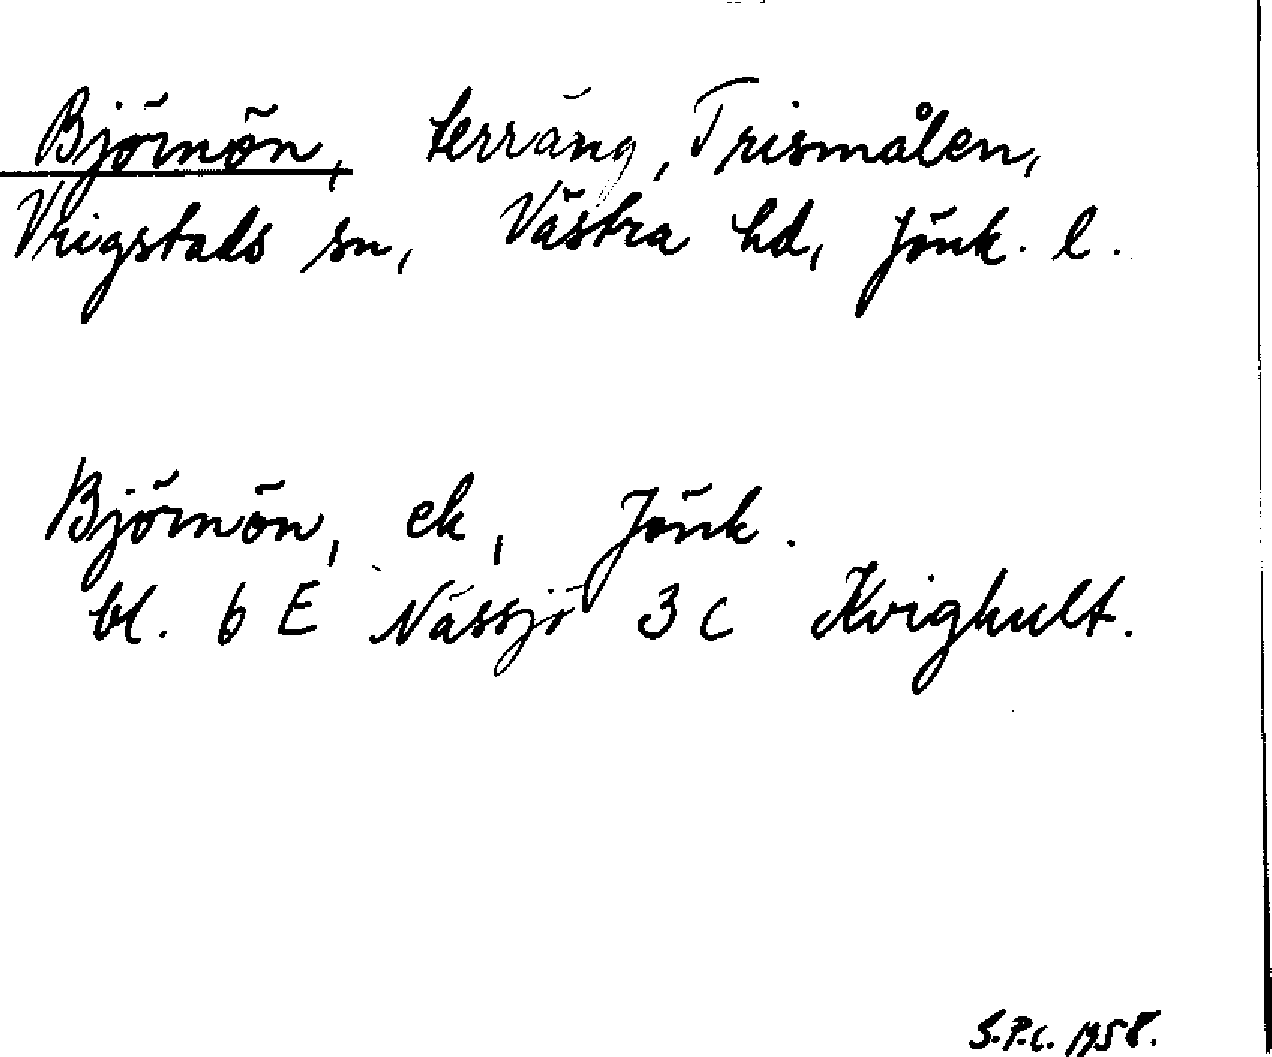 Björnön, terräng, Trismålen,
Vrigstads sn, Västra hd, Jönk. l.
Björnön, ek, Jönk.
bl. 6 E Nässjö 3 c Kvighult.
S.P.C. 1958.